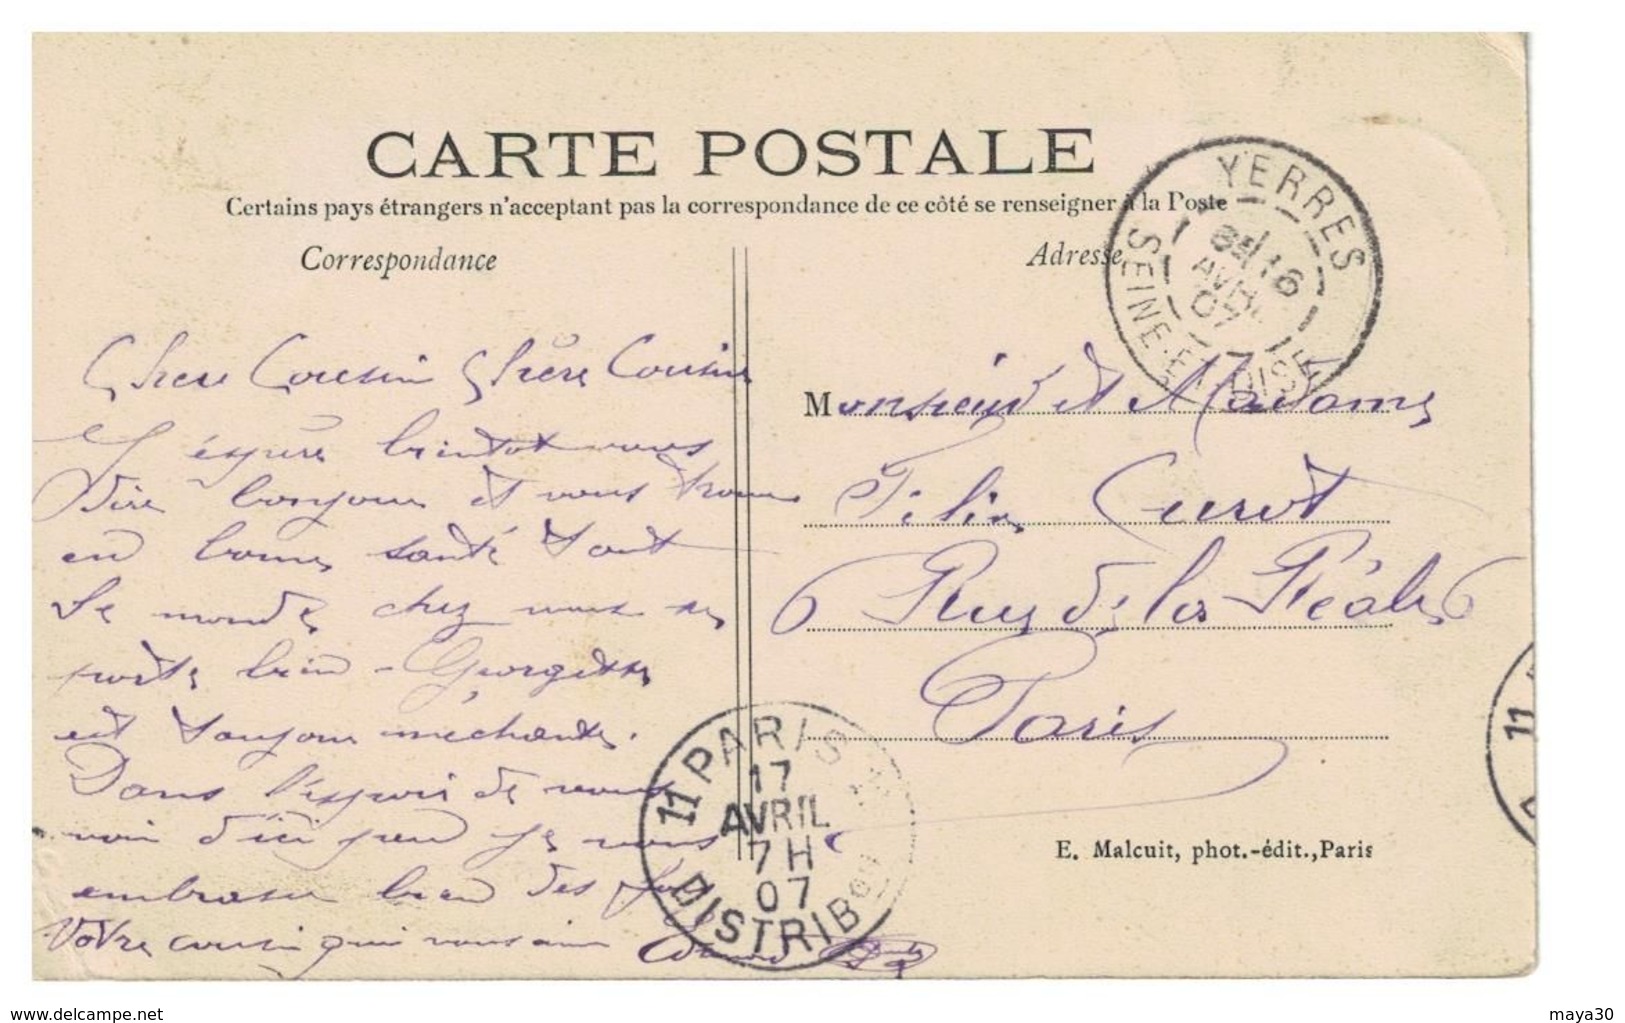 CARTE POSTALE
Certains pays étrangers n'acceptant pas la correspondance de ce côté se renseigner à la Poste
Correspondance
Adresse
YERRES
SEINE-ET-OISE
16
AVRIL
07
Chere Cousin Chère Cousine
J éspère bientot vous
dire bonjour et vous trouver
en bonne santé tout
le monde chez nous se
porte bien - Georgette
est toujour méchante.
Dans l'espoir de vous
voir d'ici peu je vous
embrasse bien des fois
Votre cousin qui vous aime Edmond
Monsieur et Madame
Félix Curot
6 Rue de la Réale 6
Paris
11 PARIS
17
AVRIL
7H
07
DISTRIBON
11
E. Malcuit, phot.-édit., Paris
www.delcampe.net
maya30